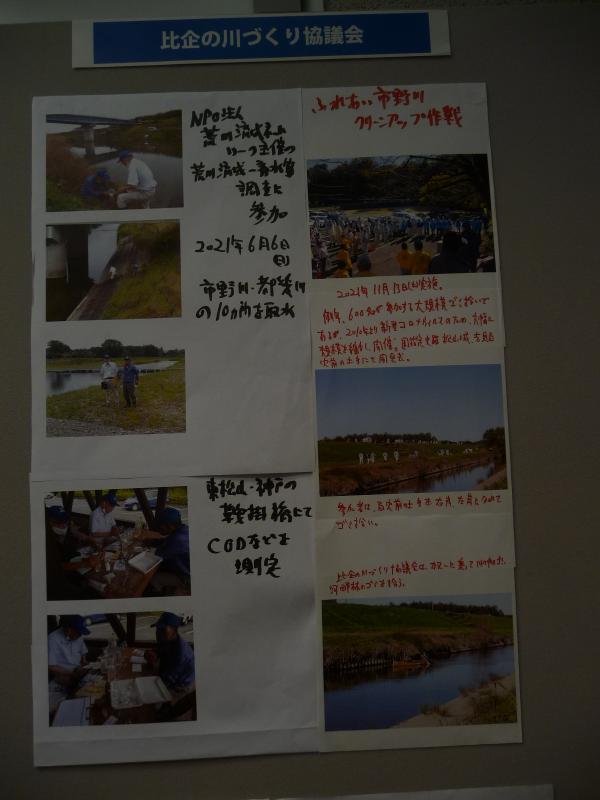 比企の川づくり協議会
NPO法人
荒川流域ネット
ワーク主催の
荒川流域一斉水質
調査に
参加
2021年6月6日
(日)
市野川・都幾川
の10ヵ所を取水
東松山・神戸の
鞍掛橋にて
CODなどを
測定
ふれあい市野川
クリーンアップ作戦
2021年11月13日(土)実施。
例年、600名が参加する大規模ゴミ拾いで
あるが、新型コロナウイルスのため、
規模を縮小し、開催。国指定史跡 松山城、吉見百
穴前の
参加者は、百穴前の 右岸、左岸と分れて
ゴミ拾い。
比企の川づくり協議会は、
河川林のゴミを拾う。